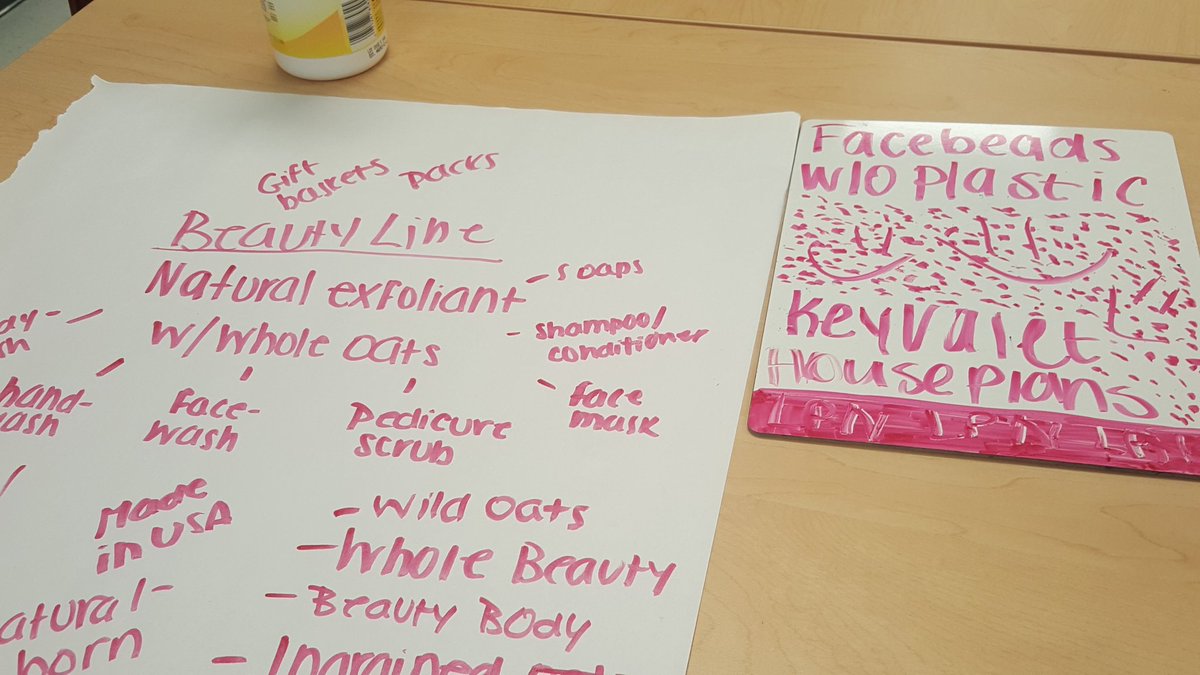 Gift
baskets packs
Beauty Line
Natural exfoliant
w/whole oats
- soaps
- shampoo/
conditioner
- face
mask
hand-
Face-
wash
Pedicure
scrub
Made
in USA
- Wild Oats
- Whole Beauty
- Beauty Body
- Ingrained
born
Facebeads
w/o Plastic
Key Valet
House plans